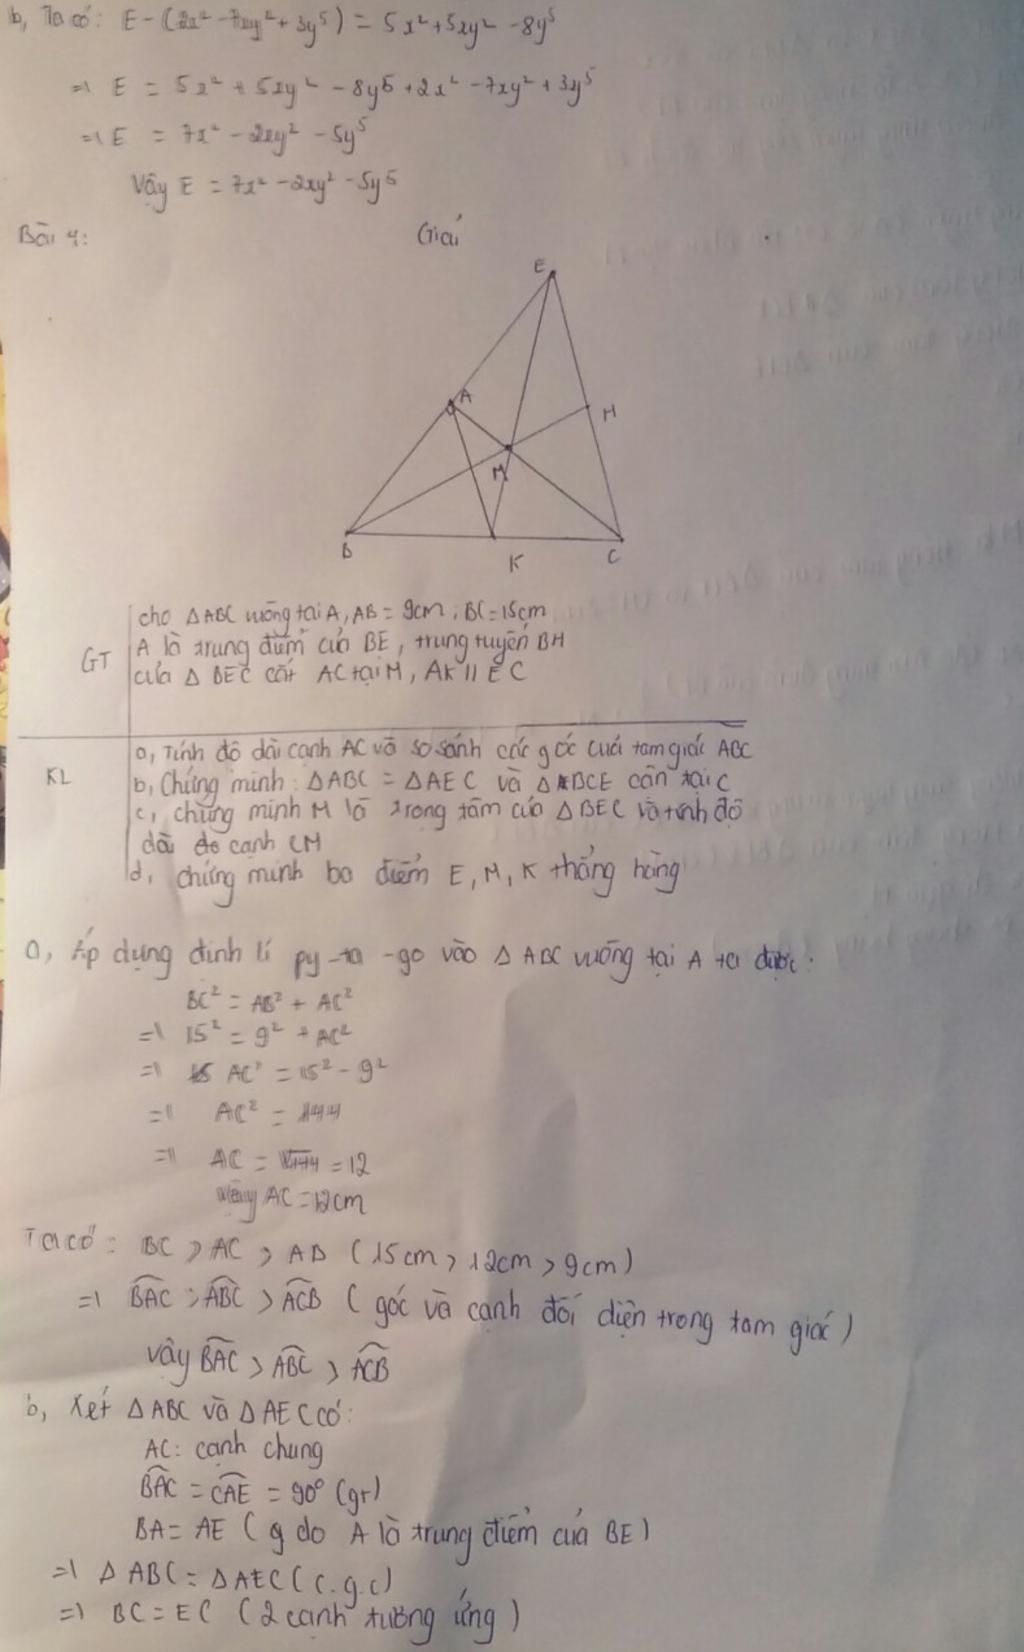 b, Ta có: E - (2x² - 7xy² + 3y⁵) = 5x² + 5xy² - 8y⁵
=> E = 5x² + 5xy² - 8y⁵ + 2x² - 7xy² + 3y⁵
=> E = 7x² - 2xy² - 5y⁵
Vậy E = 7x² - 2xy² - 5y⁵
Bài 4: Giải
E
A
H
M
B
K
C
GT
cho △ABC vuông tại A, AB = 9cm; BC = 15cm
A là trung điểm của BE, trung tuyến BH
của △ BEC cắt AC tại M, AK // EC
KL
a, Tính độ dài cạnh AC và so sánh các góc của tam giác ABC
b, Chứng minh: △ABC = △AEC và △BCE cân tại C
c, chứng minh M là trọng tâm của △BEC và tính độ
dài cạnh CM
d, chứng minh ba điểm E, M, K thẳng hàng
a, Áp dụng định lí py-ta-go vào △ ABC vuông tại A ta được:
BC² = AB² + AC²
=> 15² = 9² + AC²
=> AC² = 15² - 9²
=> AC² = 144
=> AC = √144 = 12
Vậy AC = 12cm
Ta có: BC > AC > AB (15cm > 12cm > 9cm)
=> BAC > ABC > ACB (góc và cạnh đối diện trong tam giác)
vậy BAC > ABC > ACB
b, Xét △ABC và △AEC có:
AC: cạnh chung
BAC = CAE = 90° (gt)
BA = AE (g do A là trung điểm của BE)
=> △ ABC = △AEC (c.g.c)
=> BC = EC (2 cạnh tương ứng)